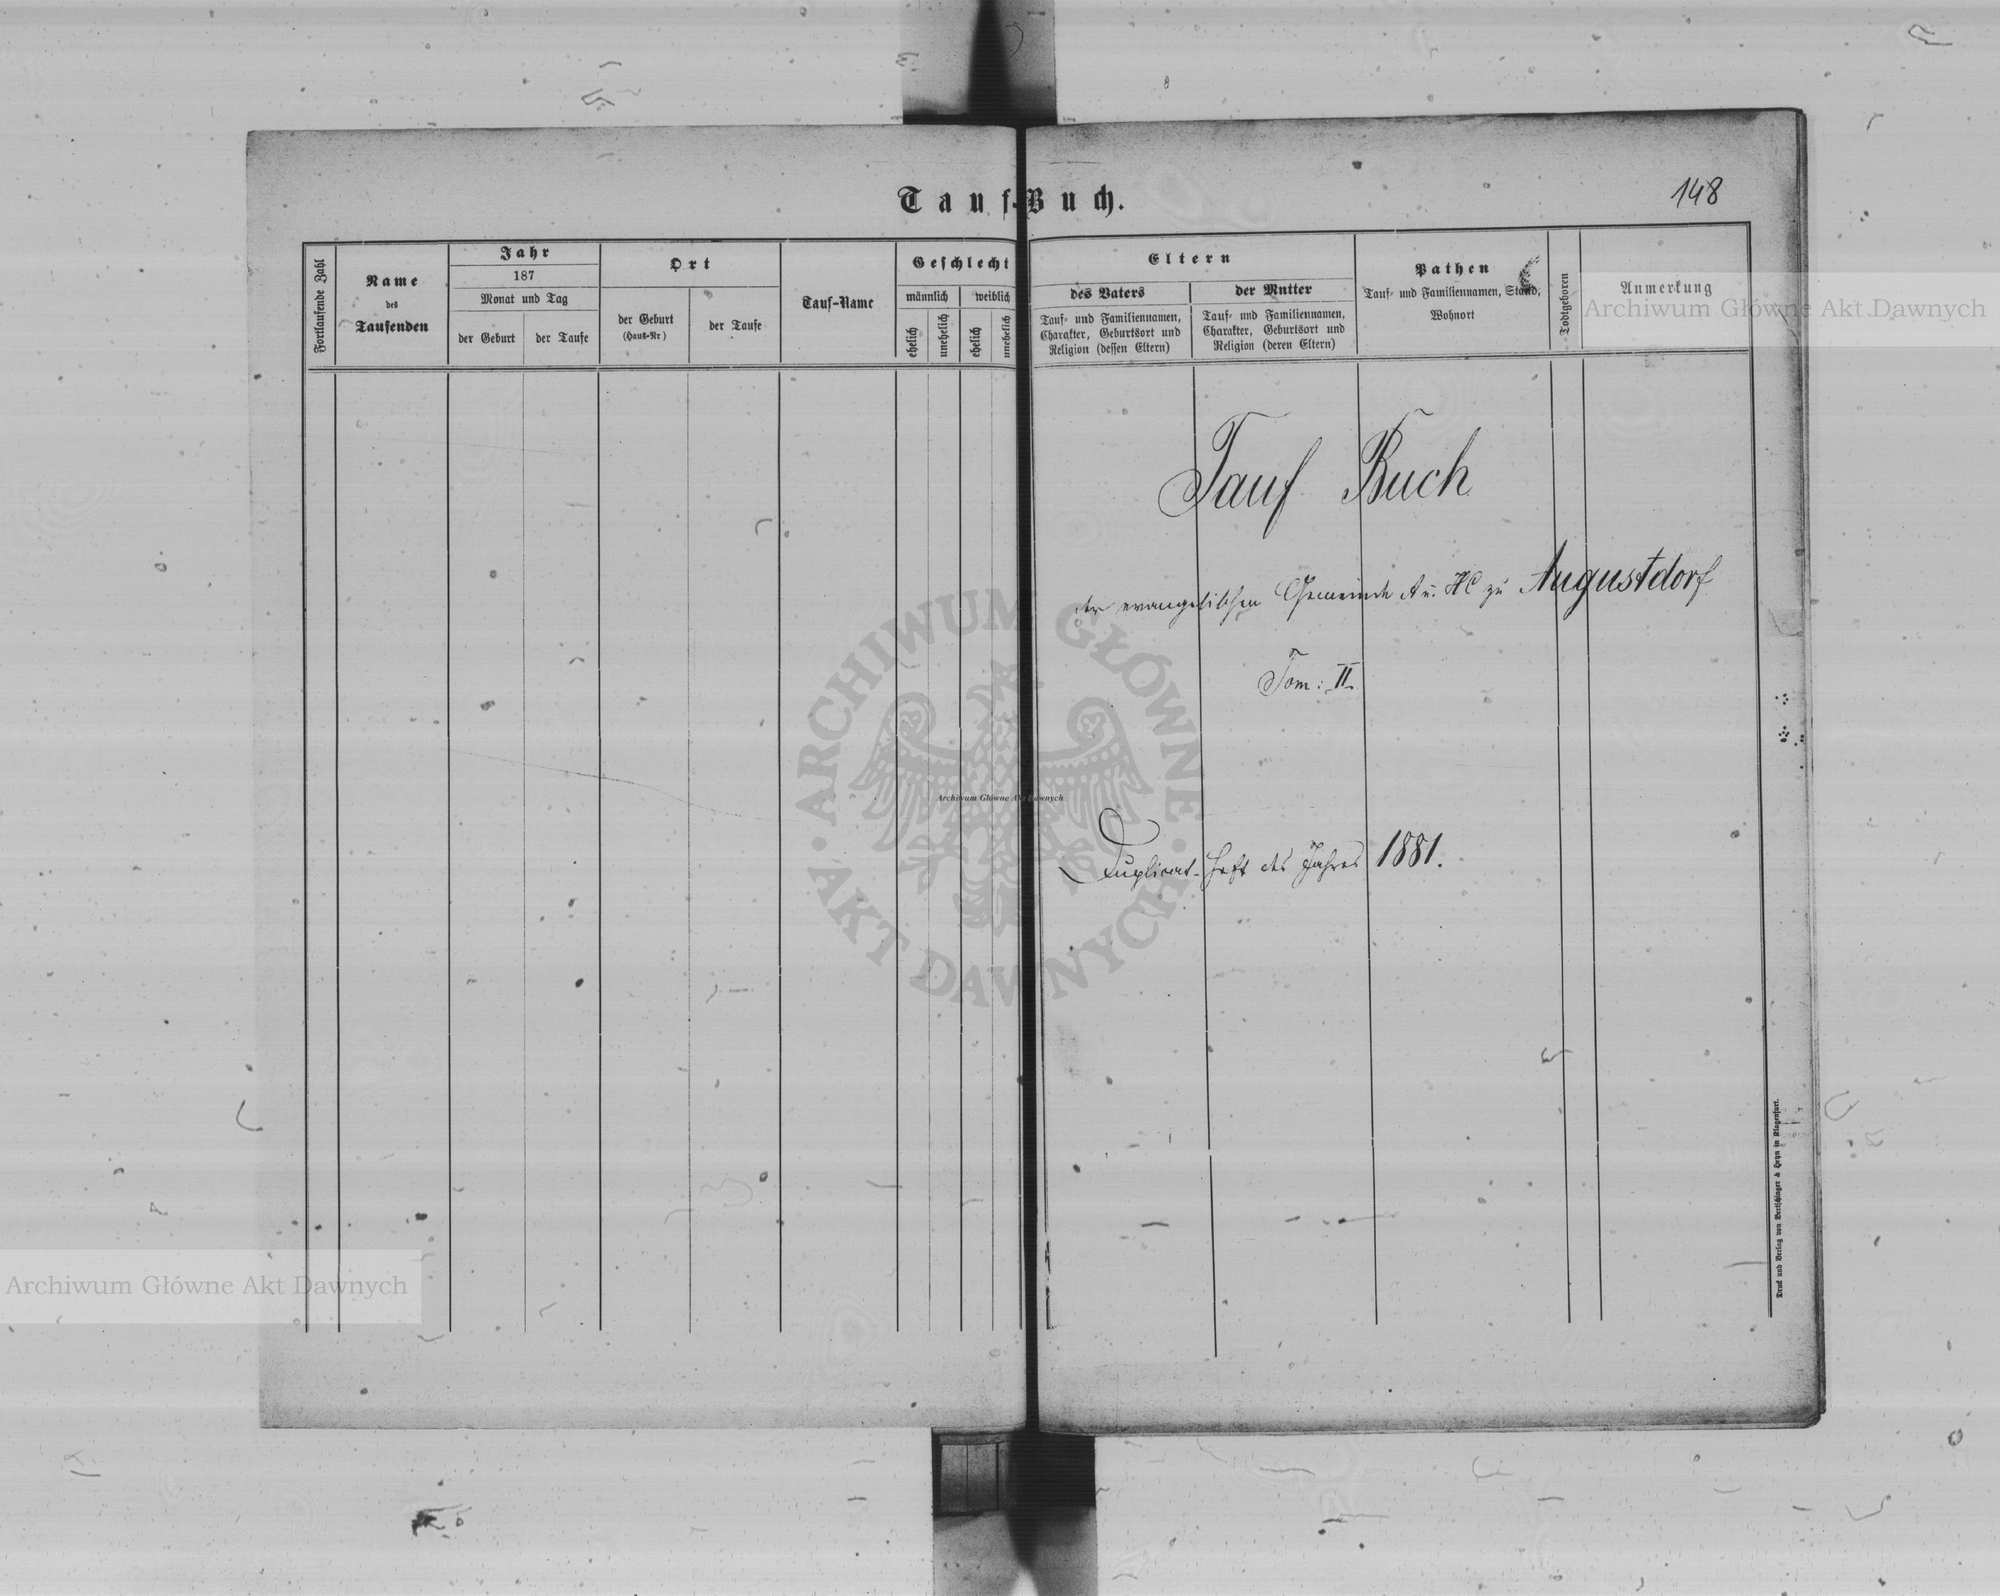 Tauf-Buch.
148
Fortlaufende Zahl
Name
des
Taufenden
Jahr
187
Monat und Tag
der Geburt
der Taufe
Ort
der Geburt
(Haus-Nr)
der Taufe
Tauf-Name
Geschlecht
männlich
weiblich
ehelich
unehelich
ehelich
unehelich
Eltern
des Vaters
Tauf- und Familiennamen,
Charakter, Geburtsort und
Religion (dessen Eltern)
der Mutter
Tauf- und Familiennamen,
Charakter, Geburtsort und
Religion (deren Eltern)
Pathen
Tauf- und Familiennamen, Stand,
Wohnort
Todtgeboren
Anmerkung
Tauf Buch
der evangelischen Gemeinde A u. HC zu Augustdorf
Tom: II
Duplicat-Heft des Jahres 1881.
Druck und Verlag von Bertschinger & Heyn in Klagenfurt.
Archiwum Główne Akt Dawnych
ARCHIWUM GŁÓWNE
AKT DAWNYCH
Archiwum Główne Akt Dawnych
Archiwum Główne Akt Dawnych